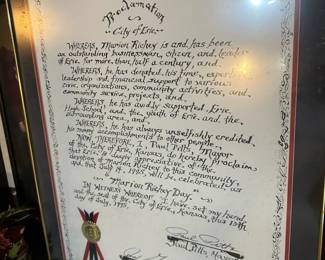 Proclamation
City of Erie
WHEREAS, Marion Richey is and has been
an outstanding businessman, citizen, and leader
of Erie for more than half a century, and,
WHEREAS, he has donated his time, expertise,
leadership and financial support to various
civic organizations, community activities, and
community service projects, and
WHEREAS, he has avidly supported Erie
High School, and the youth of Erie and the
surrounding area, and
WHEREAS, he has always unselfishly credited
his many accomplishments to other people,
NOW, THEREFORE, I, Paul Pitts, Mayor
of the City of Erie, Kansas, do hereby proclaim
that Erie's deep appreciation of the
devotion of Marion Richey to this community,
and that July 14, 1995, will be celebrated as
"Marion Richey Day."
IN WITNESS WHEREOF I have set my hand
and the seal of the City of Erie, Kansas, this 10th
day of July, 1995.
Paul Pitts
Paul Pitts, Mayor